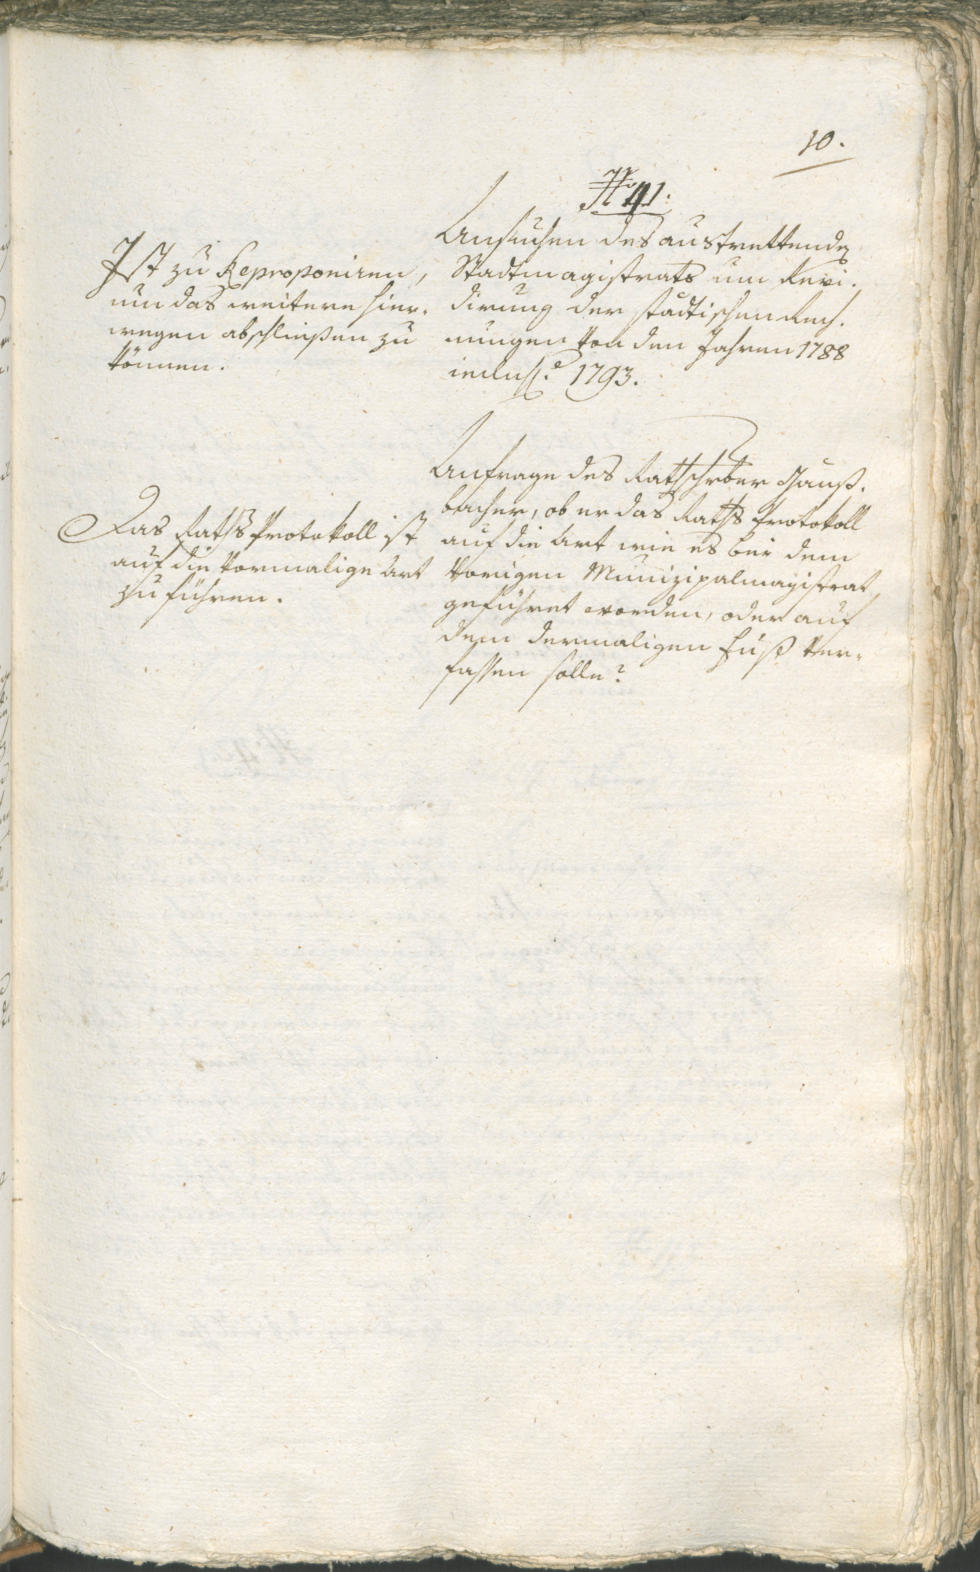 10.
No 41.
Ansuchen des austrettende
Stadtmagistrats um Revi-
dirung der städtischen Rech-
nungen von den Jahren 1788
inclus. 1793.
Ist zu Reproponiren,
um das weitere hier-
wegen abschließen zu
können.
Anfrage des Rathschrber
bacher, ob er das Raths Protokoll
auf die Art wie es bei dem
vorigen Munizipalmagistrat
geführet worden, oder auf
dem dermaligen Fuß ver-
fassen solle?
Das RathsProtokoll ist
auf die vormalige Art
zu führen.